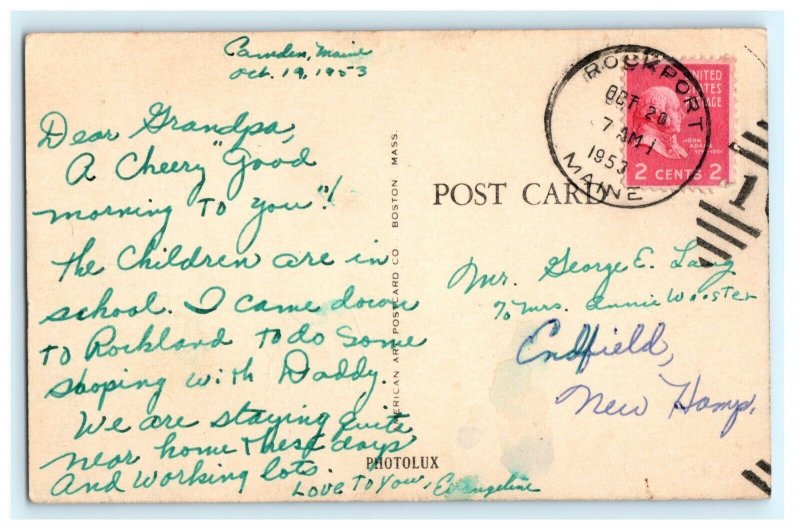 Camden, Maine
Oct. 19, 1953
Dear Grandpa,
A Cheery "Good
morning To you"!
The Children are in
school. I came down
To Rockland To do some
shoping with Daddy.
We are staying quite
near home These days
And working lots.
Love To You, Evangeline
AMERICAN ART POSTCARD CO. BOSTON MASS.
PHOTOLUX
POST CARD
ROCKPORT
OCT 20
7 AM
1953
MAINE
UNITED
STATES
POSTAGE
JOHN
ADAMS
2 CENTS 2
1
Mr. George E. Lang
℅ Mrs. Annie Wooster
Endfield,
New Hamp.